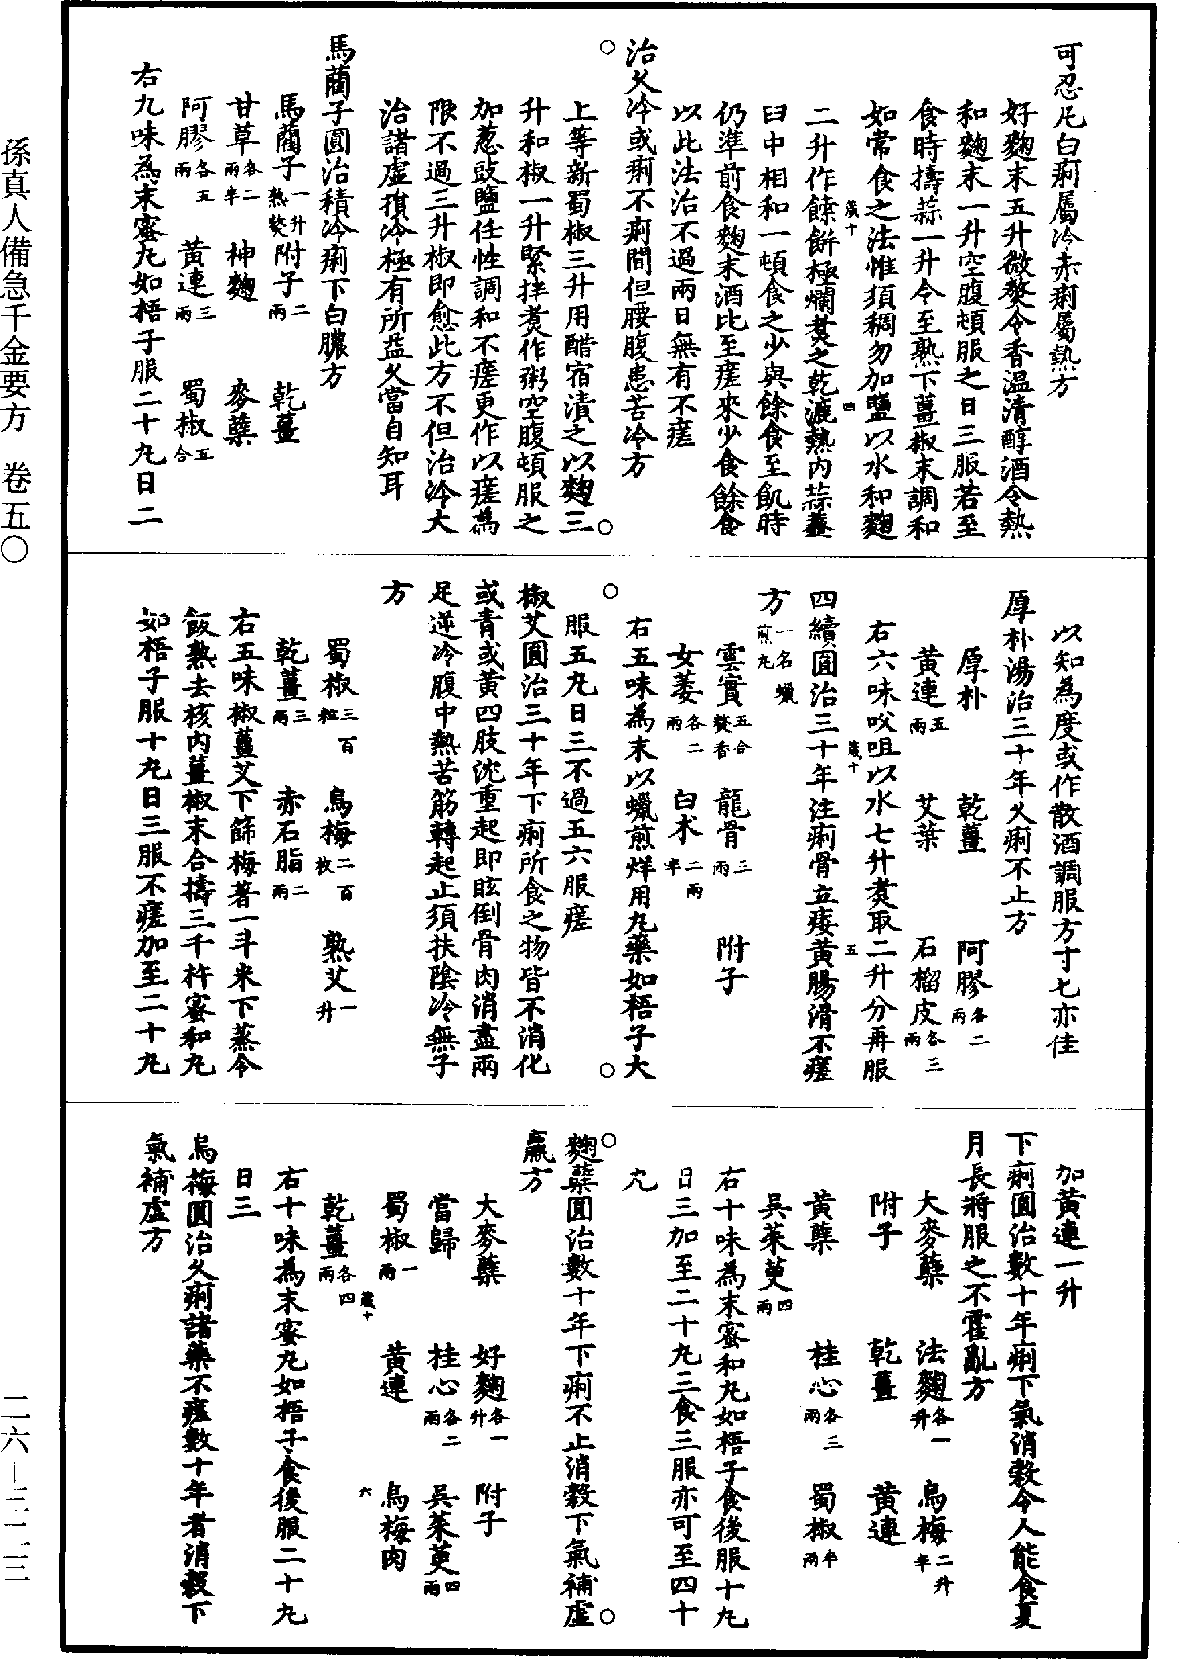 可忍凡白痢屬冷赤痢屬熱方
好麴末五升微熬令香溫清醇酒令熱
和麴末一升空腹頓服之日三服若至
食時擣蒜一升令至熟下薑椒末調和
如常食之法惟須稠勿加鹽以水和麴
二升作餺餅極爛煮之乾漉熱內蒜虀
臼中相和一頓食之少與餘食至飢時
仍準前食麴末酒比至瘥來少食餘食
以此法治不過兩日無有不瘥
治久冷或痢不痢間但腰腹患苦冷方
上等新蜀椒三升用醋宿漬之以麴三
升和椒一升緊拌煮作粥空腹頓服之
加葱豉鹽任性調和不瘥更作以瘥為
限不過三升椒即愈此方不但治冷大
治諸虛損冷極有所益久當自知耳
馬藺子圓治積冷痢下白膿方
馬藺子一升熟熬 附子二兩 乾薑
甘草各二兩半 神麴 麥蘗
阿膠各五兩 黃連三兩 蜀椒五合
右九味為末蜜丸如梧子服二十丸日二
以知為度或作散酒調服方寸匕亦佳
厚朴湯治三十年久痢不止方
厚朴 乾薑 阿膠各二兩
黃連五兩 艾葉 石榴皮各三兩
右六味㕮咀以水七升煮取二升分再服
四續圓治三十年注痢骨立痿黃腸滑不瘥
方一名蠟煎丸
雲實五合熬香 龍骨三兩 附子
女萎各二兩 白朮二兩半
右五味為末以蠟煎烊用丸藥如梧子大
服五丸日三不過五六服瘥
椒艾圓治三十年下痢所食之物皆不消化
或青或黃四肢沈重起即眩倒骨肉消盡兩
足逆冷腹中熱苦筋轉起止須扶陰冷無子
方
蜀椒三百粒 烏梅二百枚 熟艾一升
乾薑三兩 赤石脂二兩
右五味椒薑艾下篩梅著一斗米下蒸令
飯熟去核內薑椒末合擣三千杵蜜和丸
如梧子服十丸日三服不瘥加至二十丸
加黃連一升
下痢圓治數十年痢下氣消穀令人能食夏
月長將服之不霍亂方
大麥蘗 法麴各一升 烏梅二升半
附子 乾薑 黃連
黃蘗 桂心各三兩 蜀椒半兩
吳茱萸四兩
右十味為末蜜和丸如梧子食後服十丸
日三加至二十丸三食三服亦可至四十
丸
麴蘗圓治數十年下痢不止消穀下氣補虛
羸方
大麥蘗 好麴各一升 附子
當歸 桂心各二兩 吳茱萸四兩
蜀椒一兩 黃連 烏梅肉
乾薑各四兩
右十味為末蜜丸如梧子食後服二十丸
日三
烏梅圓治久痢諸藥不瘥數十年者消穀下
氣補虛方
孫真人備急千金要方 卷五〇
二六—三二三